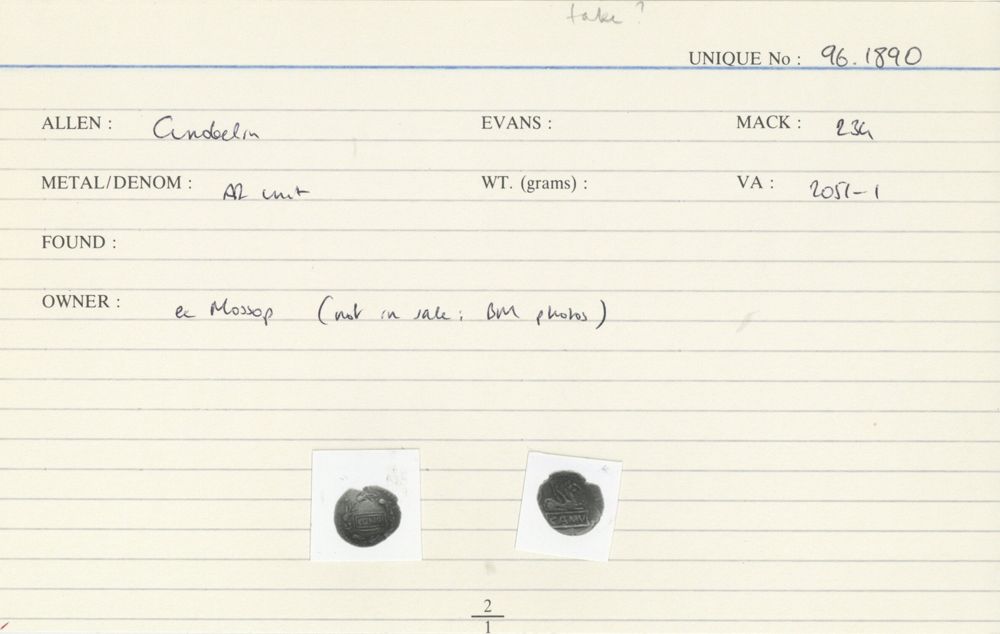 UNIQUE No : 96.1890
ALLEN : Cunobelin EVANS : MACK : 234
METAL/DENOM : AR unit WT. (grams) : VA : 2051-1
FOUND :
OWNER : ex Mossop (not in sale; BM photos)
CAMV
2
1